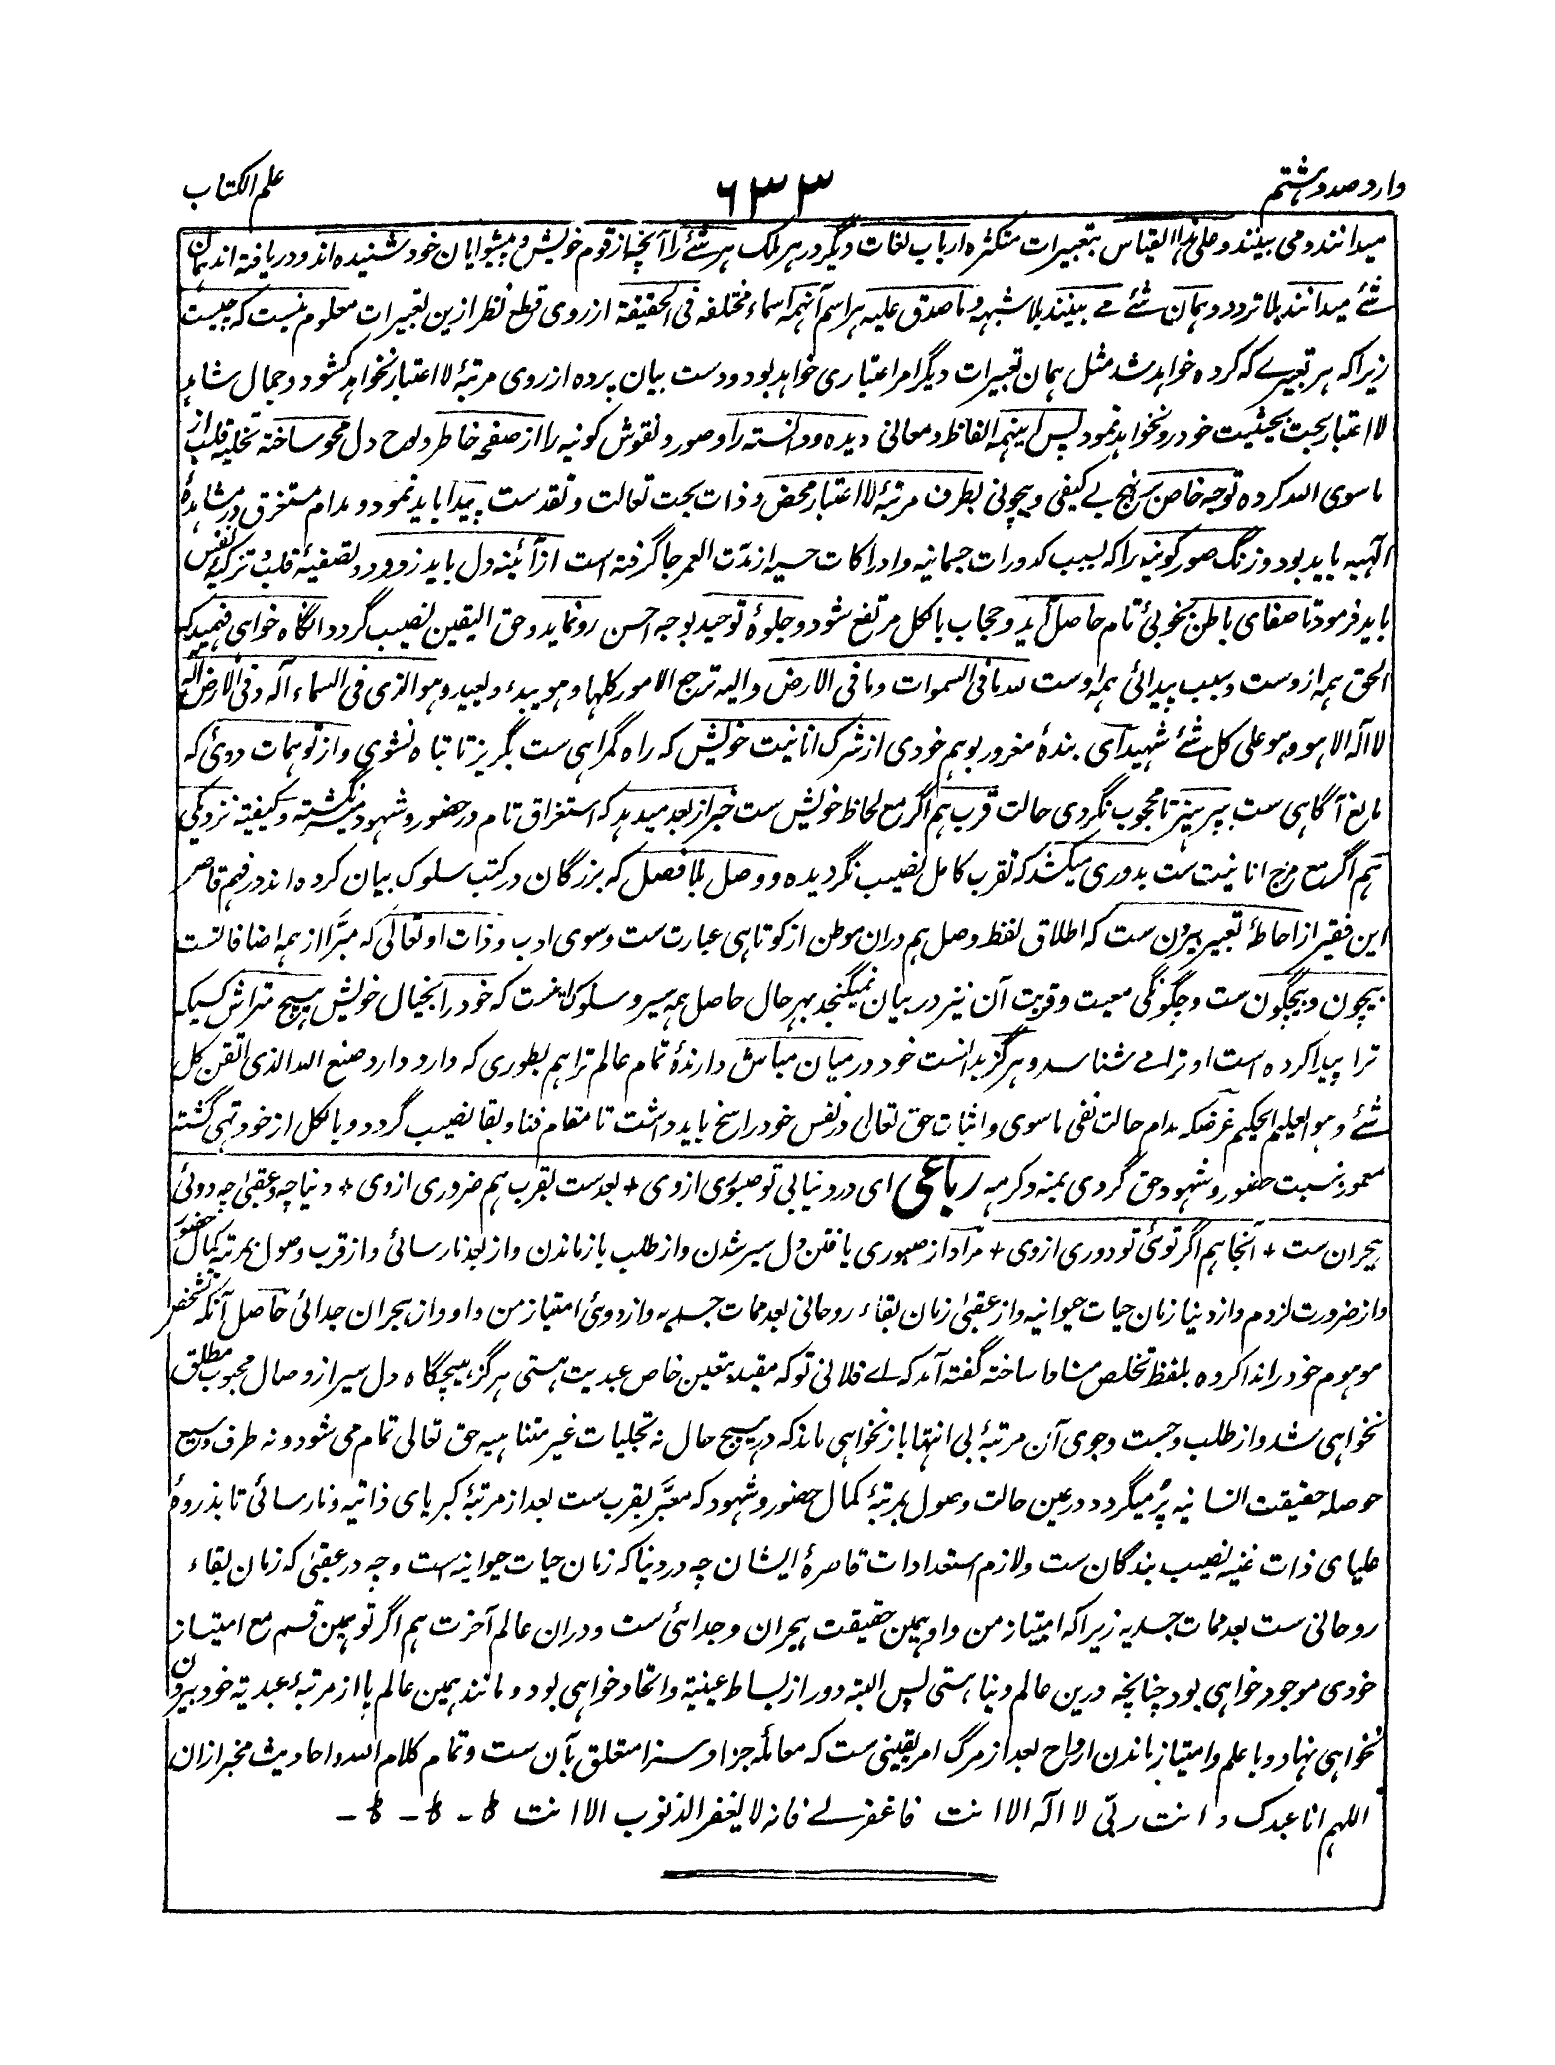 وارد صد و هشتم
۶۳۳
علم الکتاب
میدانند و می بینند و علی هذا القیاس بتعبیرات متکثره ارباب لغات دیگر در هر ملک هر شئے را آنچه از قوم خویش و پیشوایان خود شنیده اند و دریافته اند همان
شئے میدانند بلا تردد و همان شئے مے بینند بلا شبهه و ما صدق علیه هر اسم آنهمه اسماء مختلفه فی الحقیقة از روی قطع نظر ازین تعبیرات معلوم نیست که چیست
زیرا که هر تعبیرے که کرده خواهد شد مثل همان تعبیرات دیگر امر اعتباری خواهد بود و دست بیان پرده از روی مرتبهٔ لا اعتبار نخواهد کشود و جمال شاهد
لا اعتبار بحت بحیثیت خود رو نخواهد نمود پس اینهمه الفاظ و معانی دیده و دانسته را و صور و نقوش کونیه را از صفحهٔ خاطر و لوح دل محو ساخته تخلیه قلب از
ما سوی الله کرده توجه خاص بر نهج بے کیفی و بیچونی بطرف مرتبهٔ لا اعتبار محض و ذات بحت تعالت و تقدست پیدا باید نمود و مدام مستغرق در مشاهدهٔ
الٓهیه باید بود و زنگ صور کونیه را که بسبب کدورات جسمانیه و ادراکات حسیه از مدّت العمر جا گرفته است از آئینه دل باید زدود و تصفیهٔ قلب و تزکیهٔ نفس
باید فرمود تا صفای باطن بخوبیٔ تام حاصل آید و حجاب بالکل مرتفع شود و جلوهٔ توحید بوجه احسن رو نماید و حق الیقین نصیب گردد آنگاه خواهی فهمید که
الحق همه ازوست و بسبب پیدائی همه اوست لله ما فی السموات و ما فی الارض و الیه ترجع الامور کلها و هو یبدء و یعید و هو الذی فی السماء اله و فی الارض اله
لا اله الا هو و هو علی کل شئے شهید ای بندهٔ مغرور بوهم خودی از شرک انانیت خویش که راه گمراهی ست بگریز تا تباه نشوی و از توهمات دوئی که
مانع آگاهی ست بپرهیز تا محجوب نگردی حالت قرب هم اگر مع لحاظ خویش ست خبر از بعد میدهد که استغراق تام در حضور و شهود میسر نگشته و کیفیته نزدیکی
هم اگر مع مزج انانیت ست بدوری میکشد که تقرب کامل نصیب نگردیده و وصل بلا فصل که بزرگان در کتب سلوک بیان کرده اند در فهم قاصر
این فقیر از احاطهٔ تعبیر بیرون ست که اطلاق لفظ وصل هم دران موطن از کوتاهی عبارت ست و سوی ادب و ذات او تعالی که مبرّا از همه اضافاتست
بیچون و بیچگون ست و چگونگی معیت و قربت آن نیز در بیان نمیگنجد بهر حال حاصل همه سیر و سلوک اینست که خود را بخیال خویش هیچ متراش کسیکه
ترا پیدا کرده است او ترا مے شناسد و هرگز بدانست خود درمیان مباش دارندهٔ تمام عالم ترا هم بطوری که دارد دارد صنع الله الذی اتقن کل
شئے و هو العلیم الحکیم غرضکه مدام حالت نفی ما سوی و اثبات حق تعالی در نفس خود راسخ باید داشت تا مقام فنا و بقا نصیب گردد و بالکل از خود تهی گشته
معمور نسبت حضور و شهود حق گردی بمنه و کرمه رباعی ای درد نیابی تو صبوری از وی + بعدست بقرب هم ضروری از وی + دنیا چه و عقبیٰ چه دوئی
هجران ست + آنجا هم اگر توئی تو دوری از وی + مراد از صبوری یافتن دل سیر شدن و از طلب باز ماندن و از بعد نارسائی و از قرب وصول بمرتبهٔ کمال حضور
و از ضرورت لزوم و از دنیا زمان حیات حیوانیه و از عقبیٰ زمان بقاء روحانی بعد ممات جسدیه و از دوئی امتیاز من و او و از هجران جدائی حاصل آنکه تشخص
موهوم خود را ندا کرده بلفظ تخلص منادا ساخته گفته آمد که اے فلانی تو که مقید بتعین خاص عبدیت هستی هرگز هیچگاه دل سیر از وصال محبوب مطلق
نخواهی شد و از طلب و جست و جوی آن مرتبهٔ بی انتها باز نخواهی ماند که در هیچ حال نه تجلیات غیر متناهیه حق تعالی تمام می شود و نه ظرف وسیع
حوصله حقیقت انسانیه پُر میگردد و در عین حالت وصول بمرتبهٔ کمال حضور و شهود که معبّر بقرب ست بعد از مرتبهٔ کبریای ذاتیه و نارسائی تا بذروهٔ
علیای ذات غنیه نصیب بندگان ست و لازم استعدادات قاصرهٔ ایشان چه در دنیا که زمان حیات حیوانیه است و چه در عقبیٰ که زمان بقاء
روحانی ست بعد ممات جسدیه زیرا که امتیاز من و او همین حقیقت هجران و جدائی ست و دران عالم آخرت هم اگر تو بهمین قسم مع امتیاز
خودی موجود خواهی بود چنانچه درین عالم دنیا هستی پس البته دور از بساط عینیة و اتحاد خواهی بود و مانند همین عالم پا از مرتبهٔ عبدیة خود بیرون
نخواهی نهاد و با علم و امتیاز ماندن ارواح بعد از مرگ امر یقینی ست که معاملهٔ جزا و سزا متعلق بآن ست و تمام کلام الله و احادیث مخبر ازان
اللهم انا عبدک و انت ربّی لا اله الا انت فاغفر لے فانه لا یغفر الذنوب الا انت